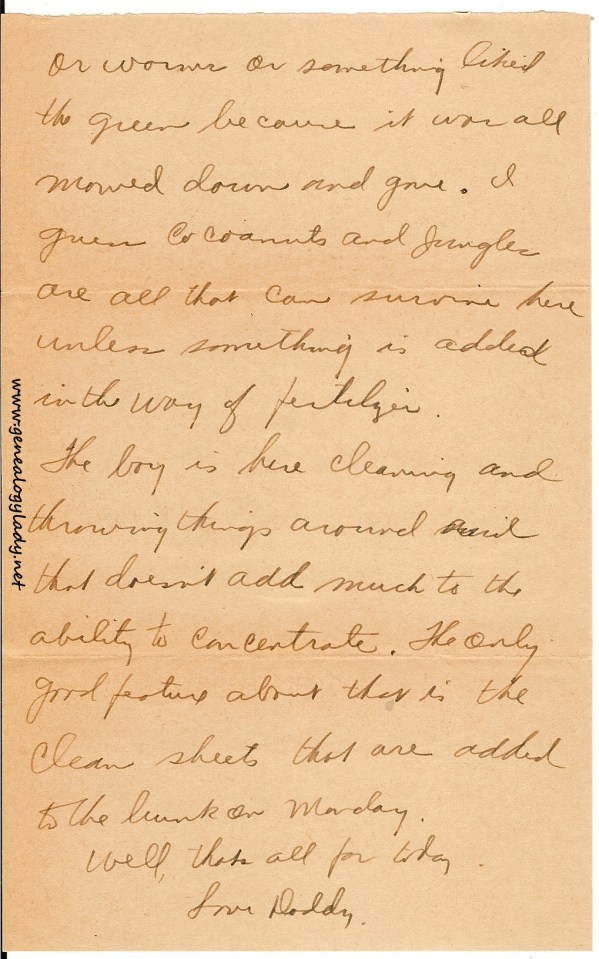 or worms or something liked
the green because it was all
mowed down and gone. I
guess Cocoanuts and Jungles
are all that can survive here
unless something is added
in the way of fertilizer.
The boy is here cleaning and
throwing things around and
that doesn't add much to the
ability to concentrate. The only
good feature about that is the
clean sheets that are added
to the bunk on Monday.
Well, thats all for today.
Love Daddy.
www.genealogylady.net